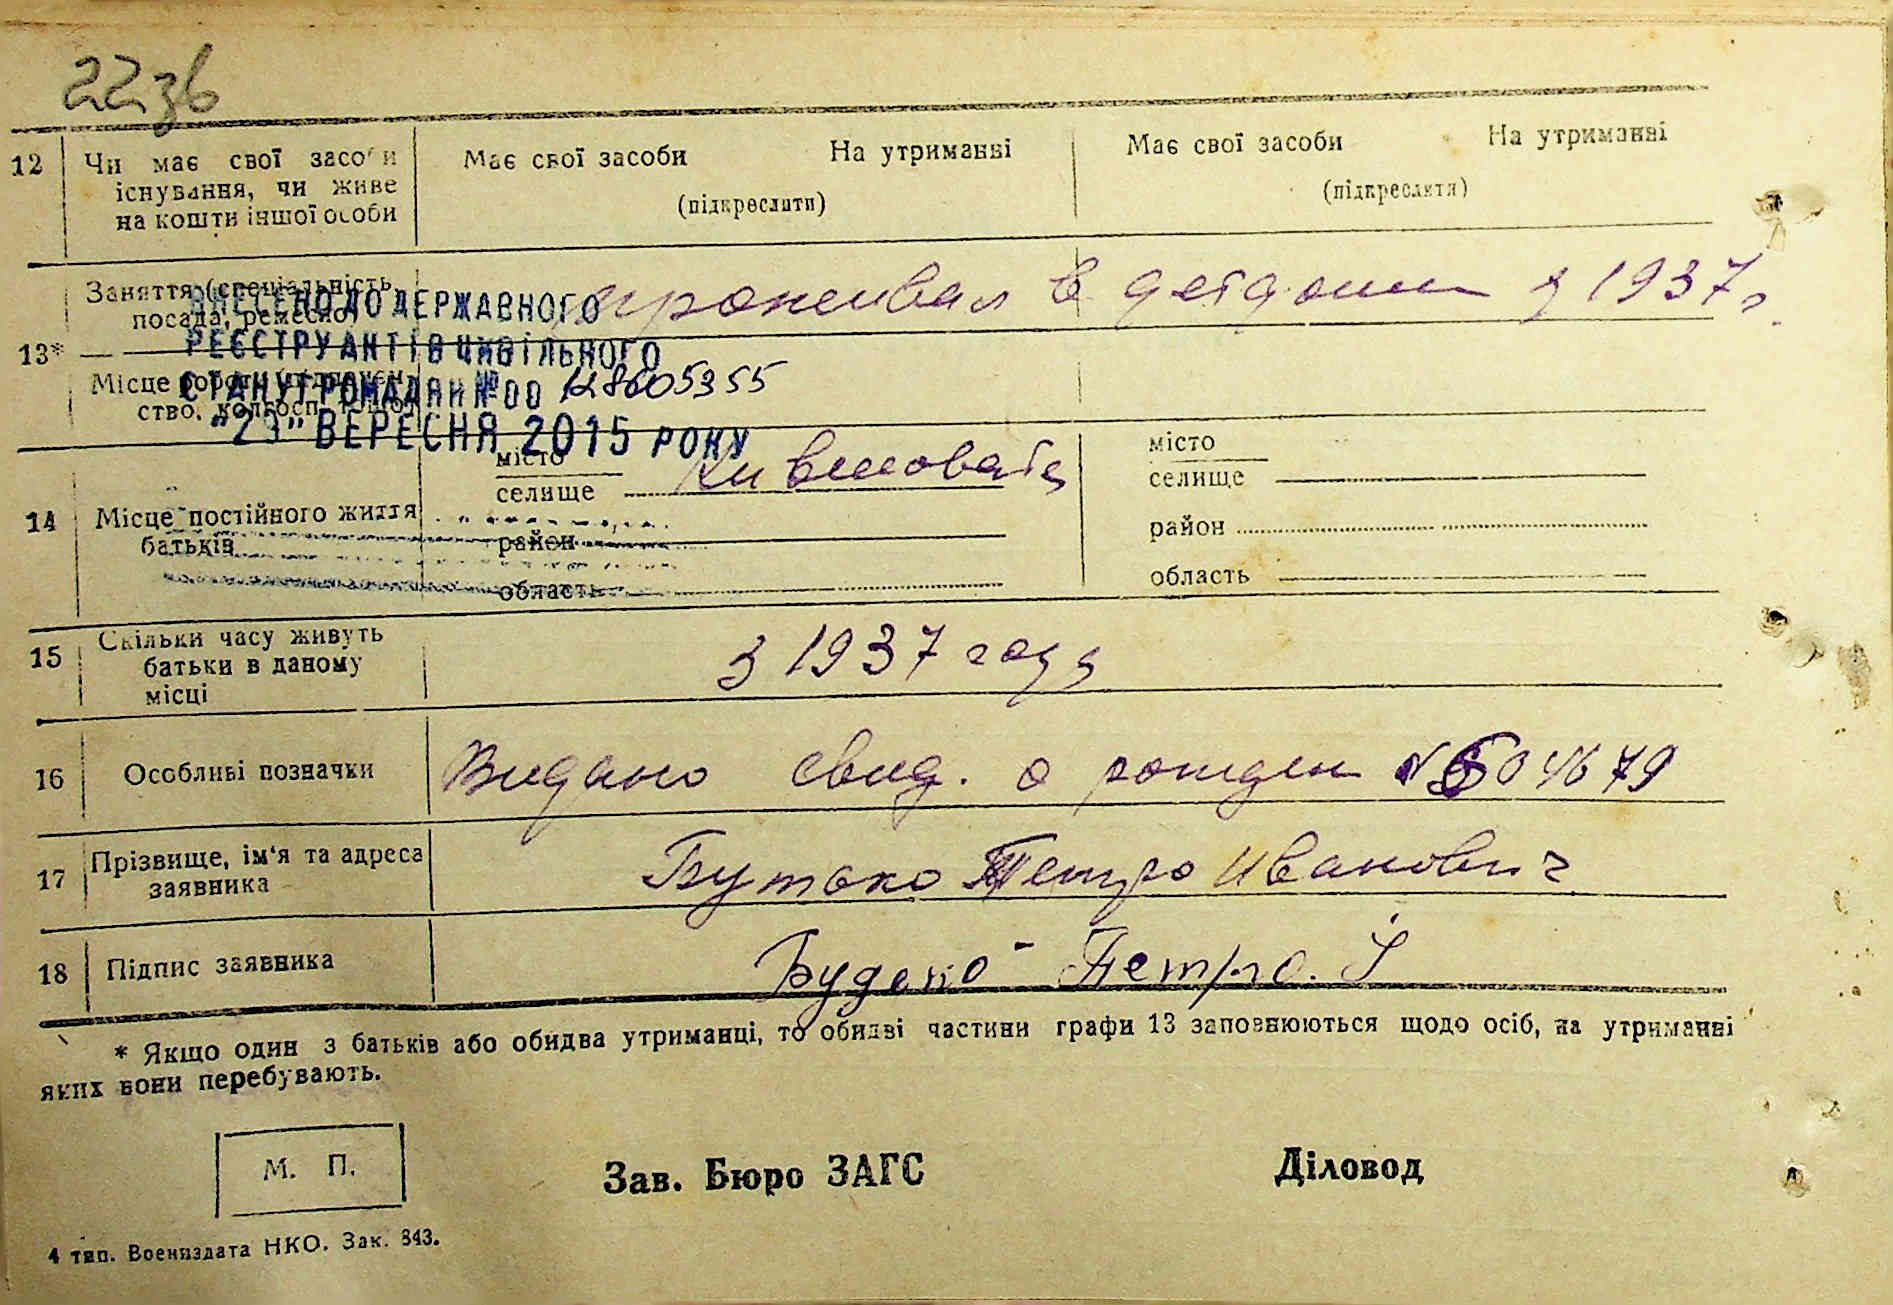 22зв
12 Чи має свої засоби Має свої засоби На утриманні Має свої засоби На утриманні
існування, чи живе
на кошти іншої особи (підкреслити) (підкреслити)
Заняття (спеціальність, проживал в детдоми з 1937 г.
посада, ремесло)
ВНЕСЕНО ДО ДЕРЖАВНОГО
13*
РЕЄСТРУ АКТІВ ЦИВІЛЬНОГО
Місце роботи
СТАНУ ГРОМАДЯН № 00128605355
ство, колгосп тощо)
"23" ВЕРЕСНЯ 2015 РОКУ
14 Місце постійного життя батьків
місто
селище
район
область
місто
селище
район
область
15 Скільки часу живуть
батьки в даному
місці
з 1937 году
16 Особливі позначки Видано свид. о рожден №504679
17 Прізвище, ім'я та адреса
заявника
Бутоко Петро Иванович
18 Підпис заявника Петро. І
* Якщо один з батьків або обидва утриманці, то обидві частини графи 13 заповнюються щодо осіб, на утриманні
яких вони перебувають.
М. П.
Зав. Бюро ЗАГС Діловод
4 тип. Воениздата НКО. Зак. 843.